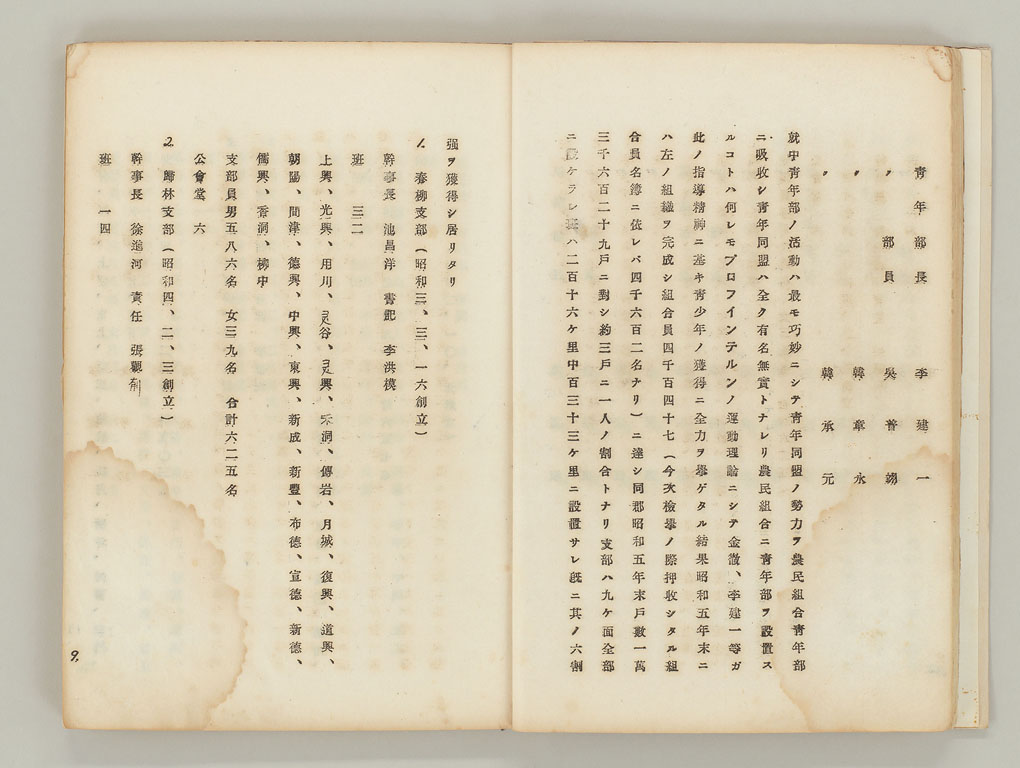 青年部長 李建一
〃 部員 吳善翊
〃 韓章永
〃 韓承元
就中青年部ノ活動ハ最モ巧妙ニシテ青年同盟ノ勢力ヲ農民組合青年部
ニ吸收シ青年同盟ハ全ク有名無實トナレリ農民組合ニ青年部ヲ設置ス
ルコトハ何レモプロフインテルンノ運動理論ニシテ金澂、李建一等ガ
此ノ指導精神ニ基キ青少年ノ獲得ニ全力ヲ擧ゲタル結果昭和五年末ニ
ハ左ノ組織ヲ完成シ組合員四千百四十七（今次檢擧ノ際押收シタル組
合員名簿ニ依レバ四千六百二名ナリ）ニ達シ同郡昭和五年末戶數一萬
三千六百二十九戶ニ對シ約三戶ニ一人ノ割合トナリ支部ハ九ケ面全部
ニ設ケラレ班ハ二百十六ケ里中百三十三ケ里ニ設置サレ旣ニ其ノ六割
强ヲ獲得シ居リタリ
1. 春柳支部（昭和三、三、一六創立）
幹事長 池昌洋 書記 李洪模
班 三二
上興、光興、用川、灵谷、灵興、禾洞、傳岩、月城、復興、道興、
朝陽、間津、德興、中興、東興、新成、新豐、布德、宣德、新德、
儒興、香洞、柳中
支部員男五八六名 女三九名 合計六二五名
公會堂 六
2. 歸林支部（昭和四、二、三創立）
幹事長 徐進河 責任 張觀
班 一四
9.